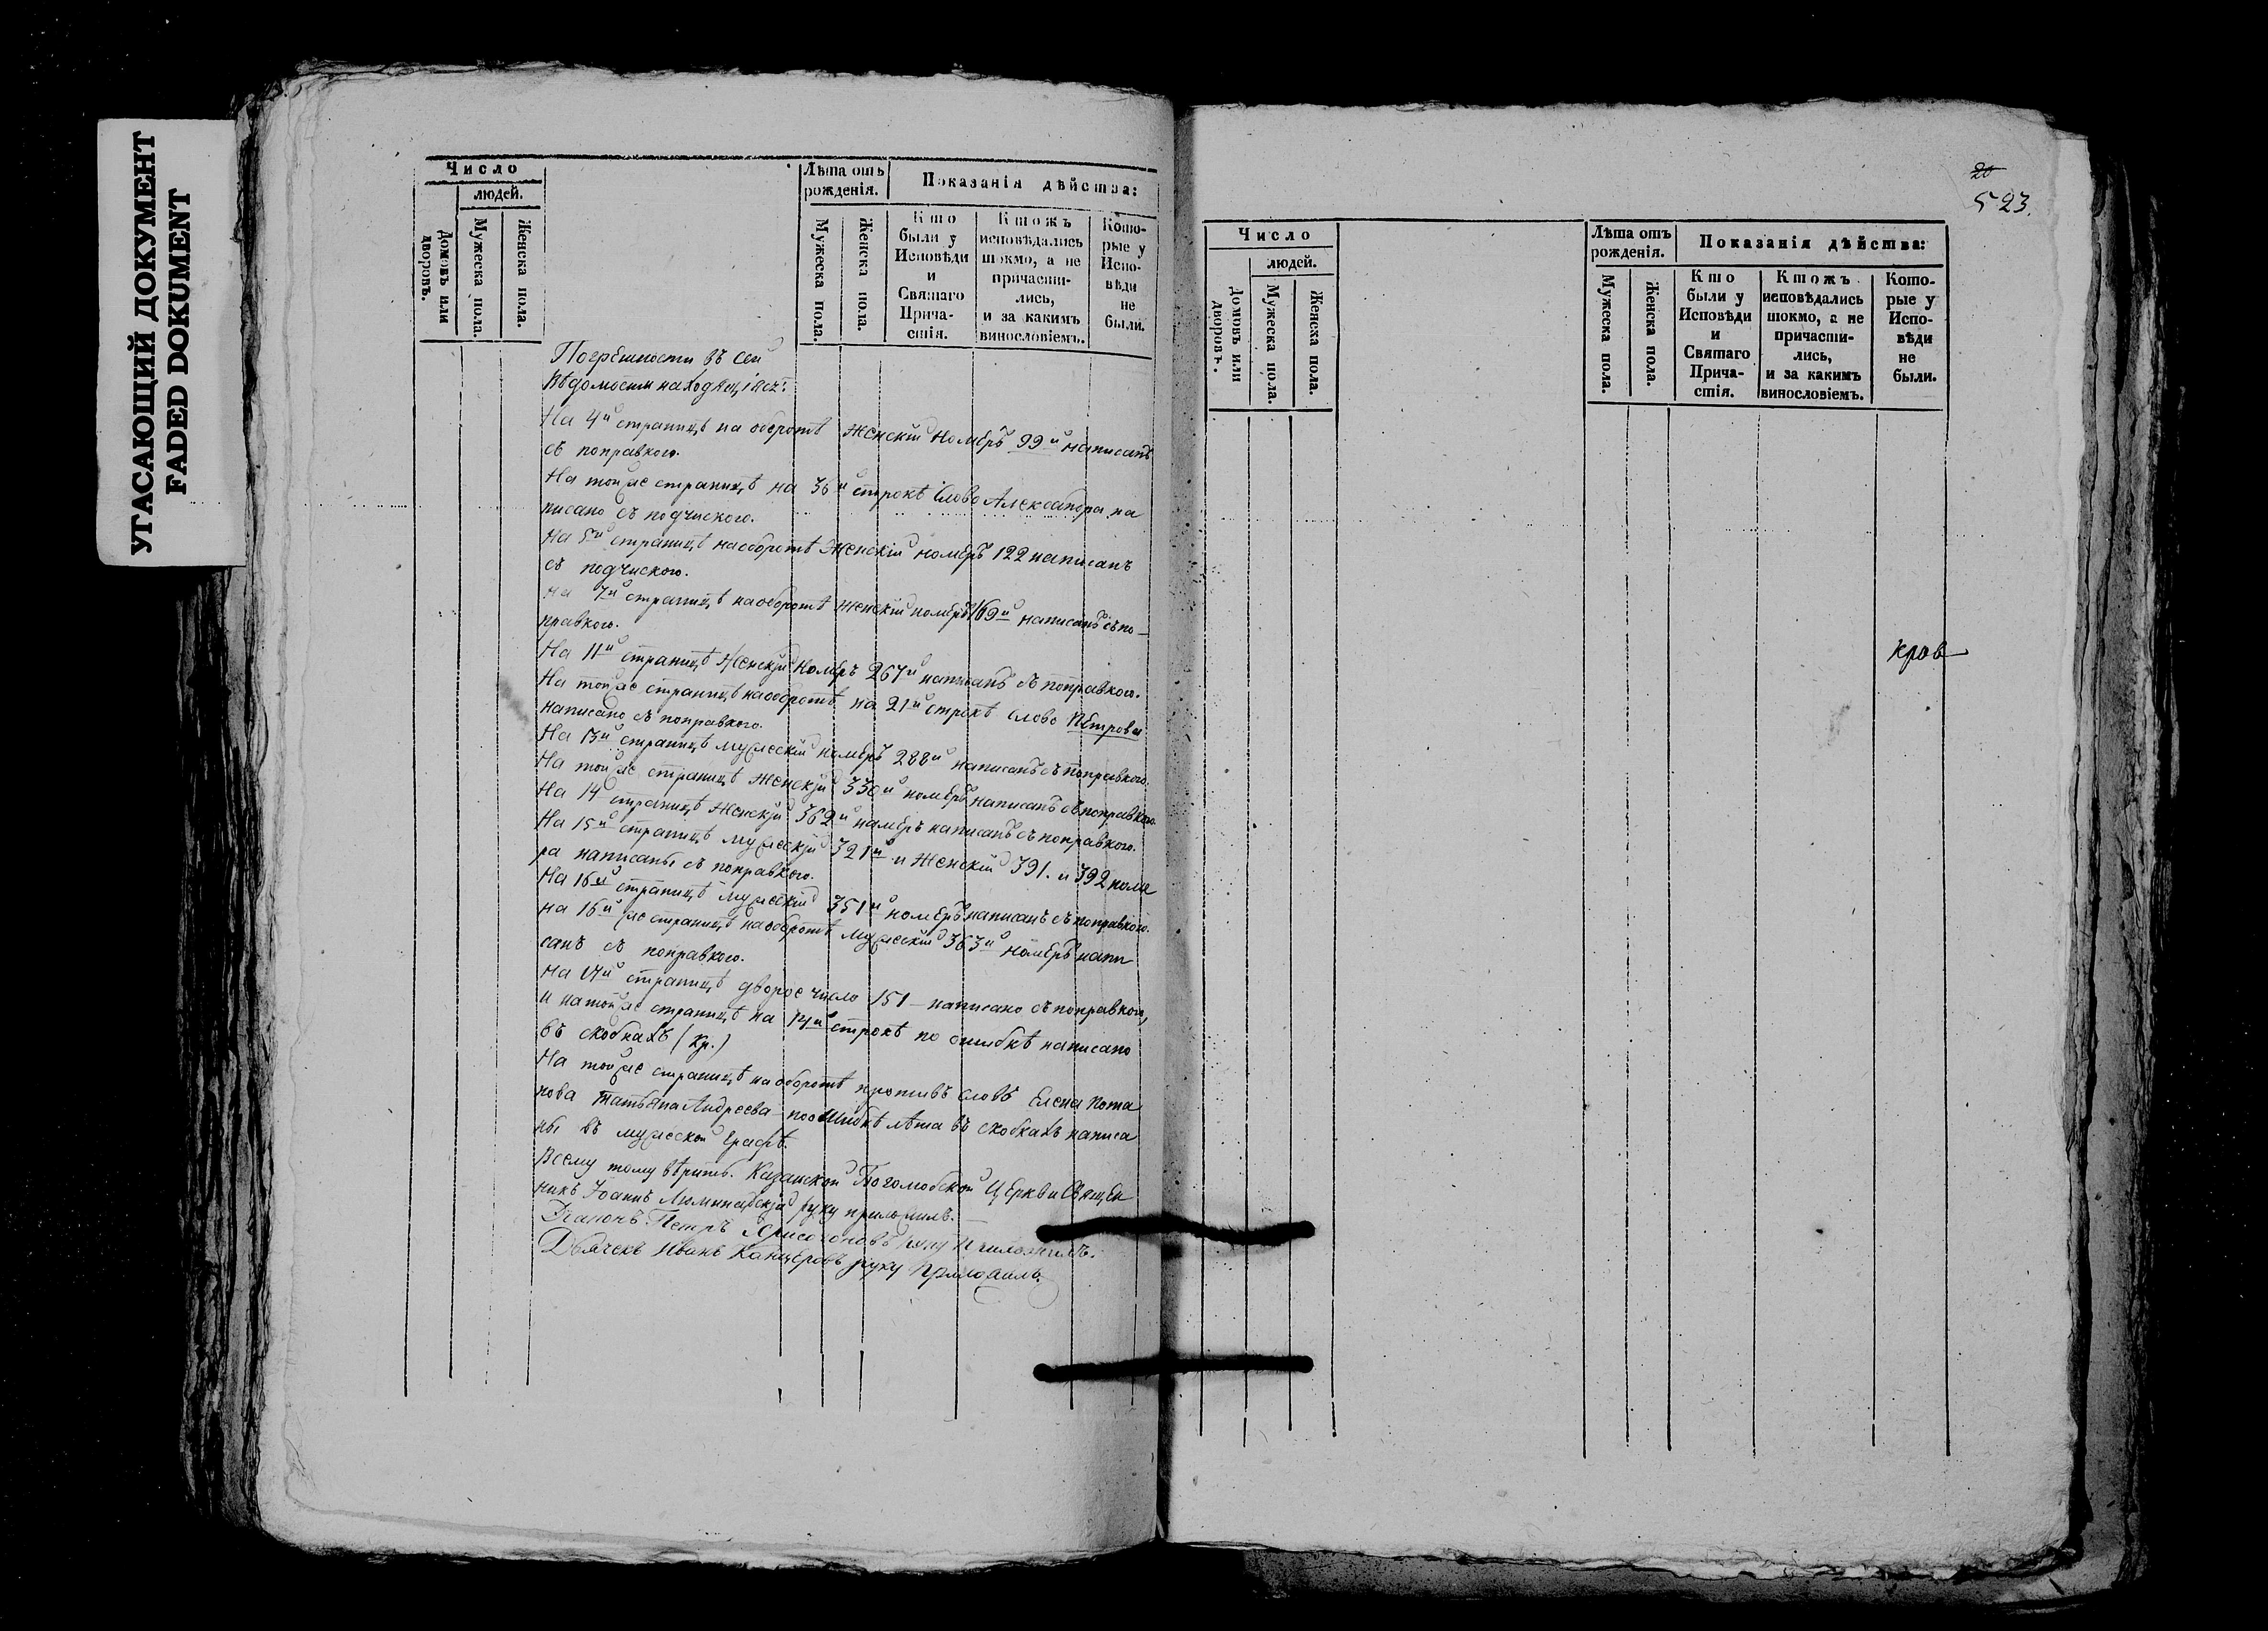 УГАСАЮЩИЙ ДОКУМЕНТ
FADED DOKUMENT
Число
людей.
Домовъ или дворовъ.
Мужеска пола.
Женска пола.
Лѣта отъ рожденія.
Мужеска пола.
Женска пола.
Показанія дѣйства:
Кто были у Исповѣди и Святаго Прича-стія.
Ктожъ исповѣдались токмо, а не причасти-лись, и за какимъ винословіемъ.
Кото-рые у Испо-вѣди не были.
Погрешности въ сей
вѣдомости находящіясѧ:
На 4й страницѣ на оборотѣ Женскій Номеръ 99й написанъ
съ поправкою.
На тойже страницѣ на 36й строкѣ слово Александра на
писано съ подчискою.
На 5й страницѣ наоборотѣ Женскій номеръ 122 написанъ
съ подчискою.
на 7й страницѣ наоборотѣ Женскій номеръ 169й написанъ съ по-
правкою.
На 11й страницѣ Женскій Номеръ 267й написанъ съ поправкою.
На тойже страницѣ наоборотѣ на 21й строкѣ слово Петрова
написано съ поправкою.
На 13й страницѣ мужескій номеръ 288й написанъ съ поправкою.
На тойже страницѣ Женскій 330й номеръ написанъ съ поправкою.
На 14 страницѣ Женскій 362й номеръ написанъ съ поправкою.
На 15й страницѣ мужескій 321й и Женскій 391. и 392 номе
ра написаны съ поправкою.
На 16й страницѣ мужескій 351й номеръ написанъ съ поправкою.
на 16й же страницѣ наоборотѣ мужескій 363й номеръ напи
санъ съ поправкою.
на 17й страницѣ дворое число 151 – написано съ поправкою,
и натойже страницѣ на 14й строкѣ по ошибкѣ написано
въ скобкахъ (Кр.)
На тойже страницѣ на оборотѣ противъ словъ Елена Пота
пова Татьяна Андреева – по ошибкѣ лѣта въ скобкахъ написа
ны въ мужеской графѣ.
Всему тому вѣрить. Казанской Боголюбской Церкви Священ
никъ Іоаннъ руку приложилъ.
Діаконъ Петръ руку приложилъ.
Дьячекъ Иванъ Канцеровъ руку приложилъ.
20
523.
Число
людей.
Домовъ или дворовъ.
Мужеска пола.
Женска пола.
Лѣта отъ рожденія.
Мужеска пола.
Женска пола.
Показанія дѣйства:
Кто были у Исповѣди и Святаго Прича-стія.
Ктожъ исповѣдались токмо, а не причасти-лись, и за какимъ винословіемъ.
Кото-рые у Испо-вѣди не были.
кров